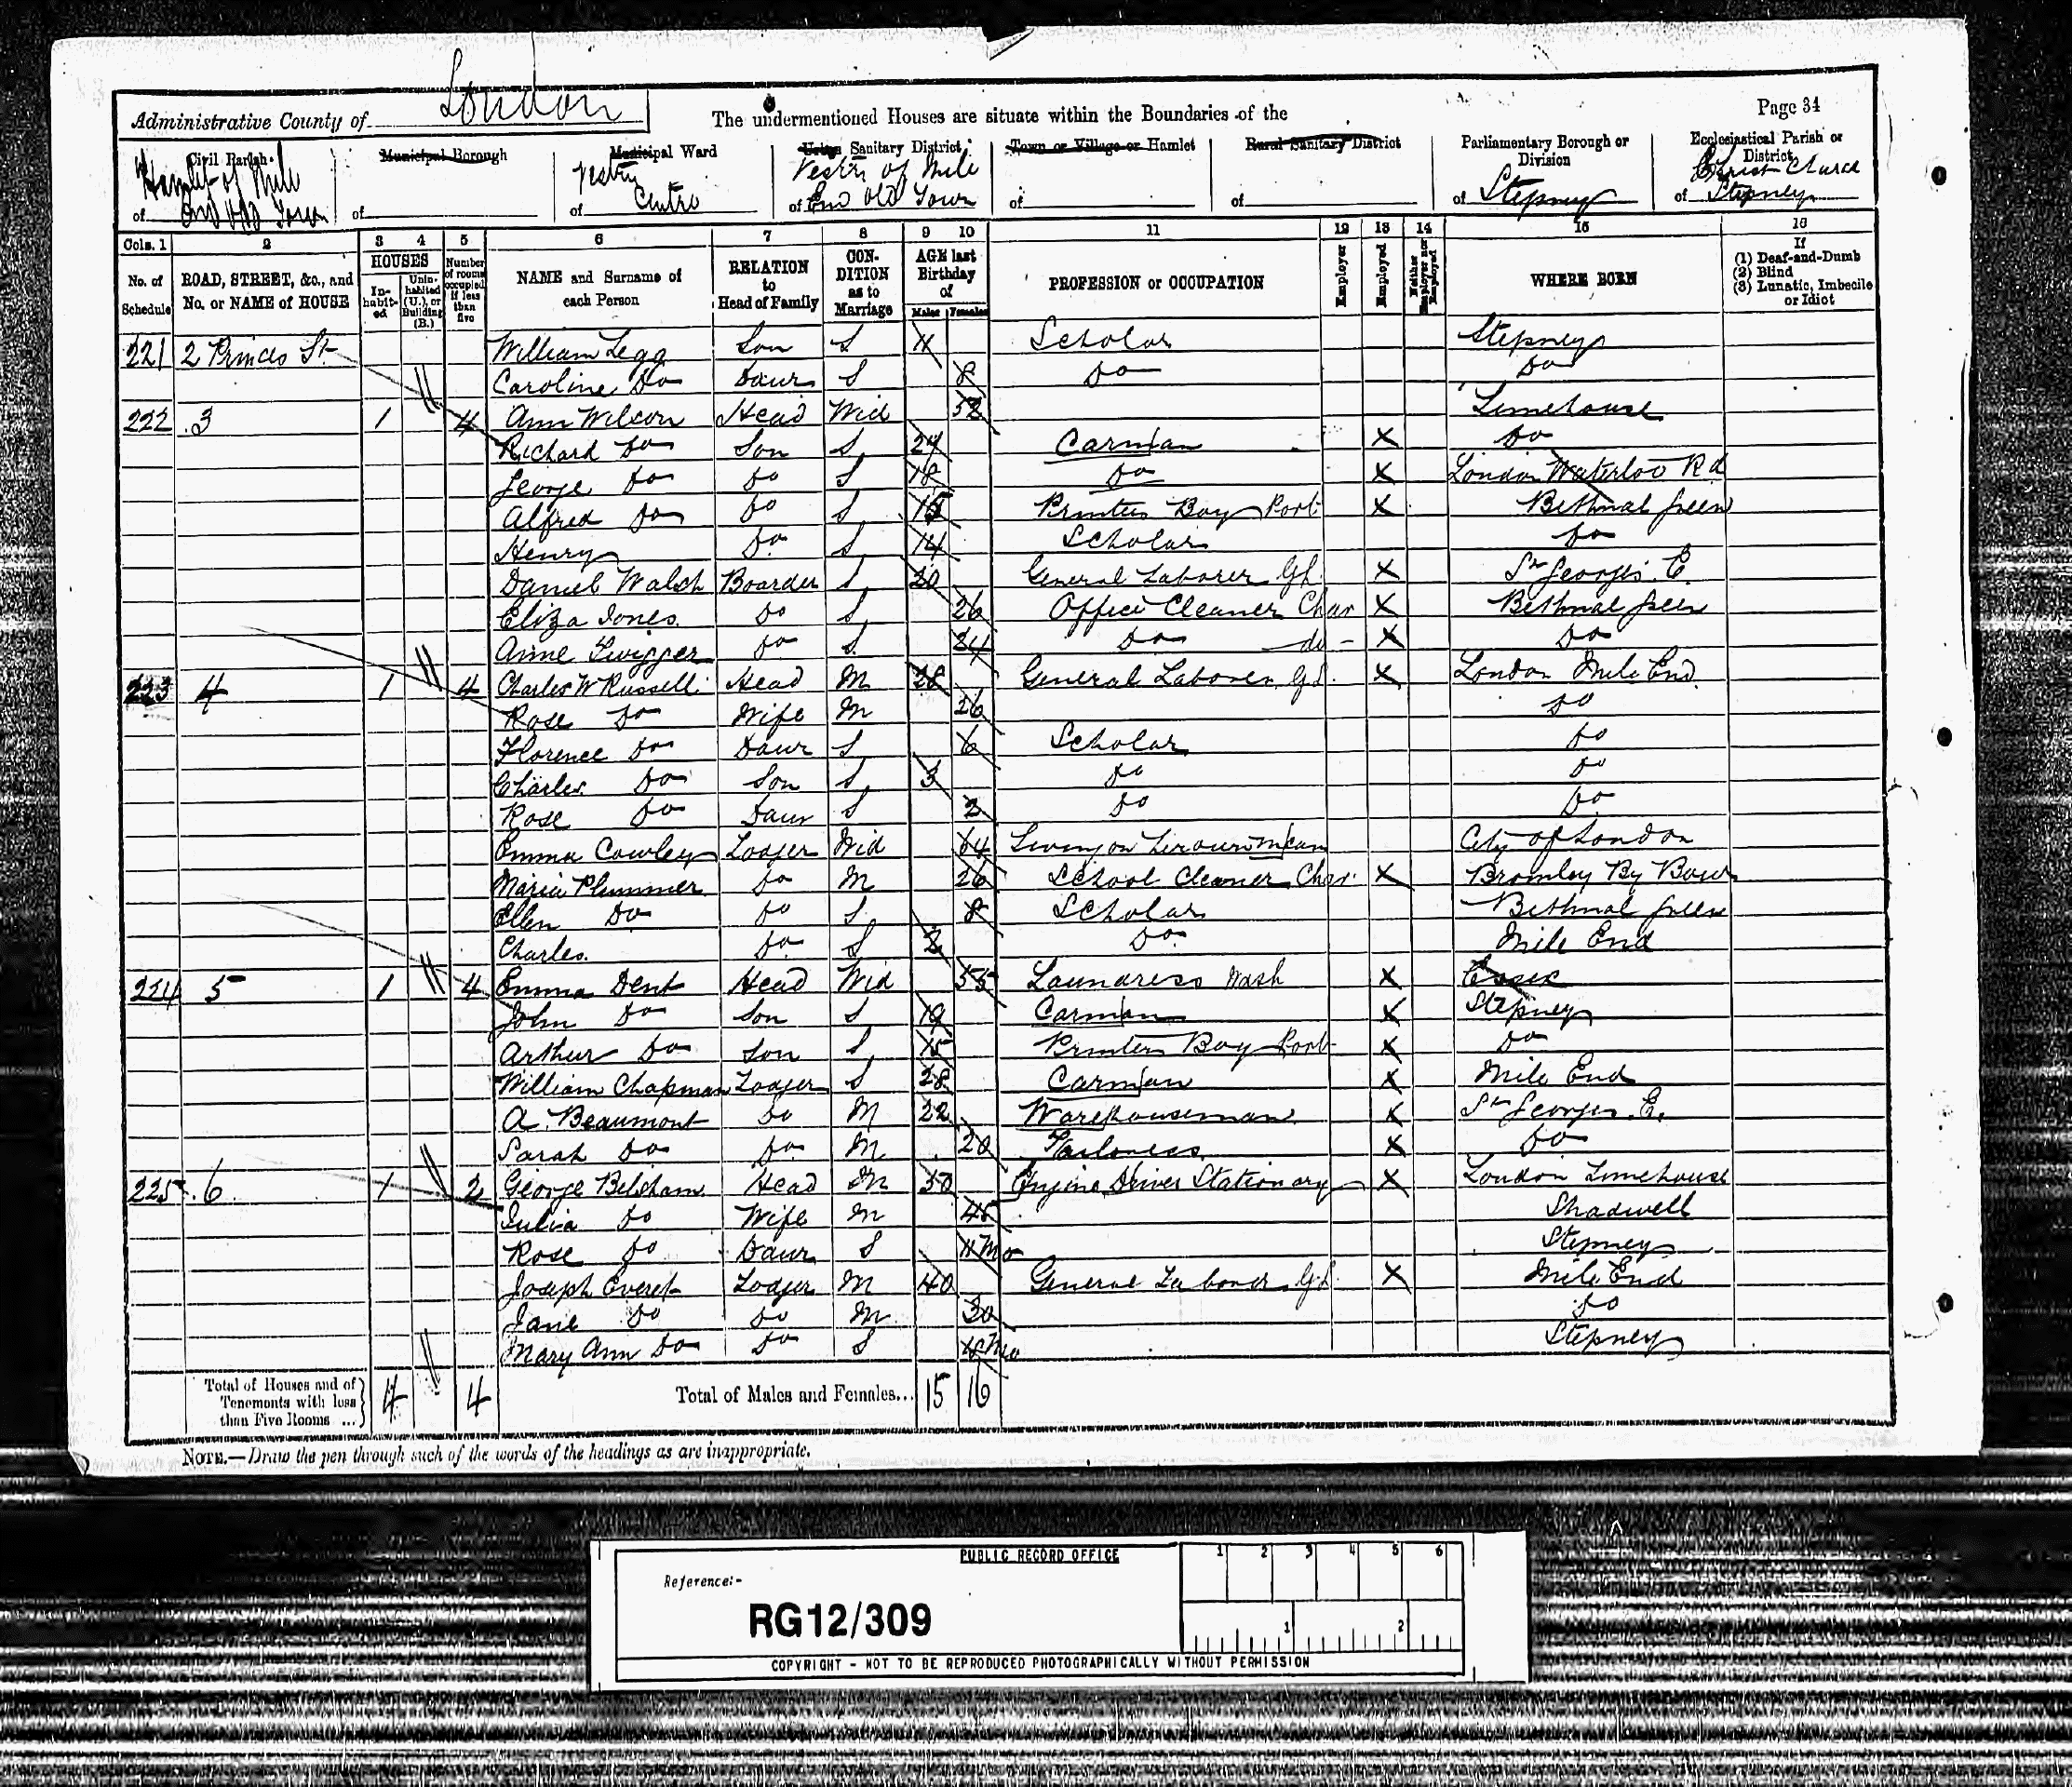 Page 34
Administrative County of London
The undermentioned Houses are situate within the Boundaries of the
Civil Parish of Hamlet of Mile End Old Town
Municipal Borough of
Municipal Ward of Vestry Centre
Urban Sanitary District of Vestry of Mile End Old Town
Town or Village or Hamlet of
Rural Sanitary District of
Parliamentary Borough or Division of Stepney
Ecclesiastical Parish or District of Christ Church Stepney
Cols. 1 2 3 4 5 6 7 8 9 10 11 12 13 14 15 16
No. of Schedule
ROAD, STREET, &c., and No. or NAME of HOUSE
HOUSES
In-habit-ed
Unin-habited (U.), or Building (B.)
Number of rooms occupied if less than five
NAME and Surname of each Person
RELATION to Head of Family
CON-DITION as to Marriage
AGE last Birthday of
Males Females
PROFESSION or OCCUPATION
Employer
Employed
Neither Employer nor Employed
WHERE BORN
If (1) Deaf-and-Dumb (2) Blind (3) Lunatic, Imbecile or Idiot
221 2 Princes St William Legg Son S 11 Scholar Stepney
Caroline Do Daur S 8 Do Do
222 3 1 4 Ann Wilson Head Wid 52 Limehouse
Richard Do Son S 24 Carman X Do
George Do Do S 18 Do X London Waterloo Rd
Alfred Do Do S 15 Printers Boy Port X Bethnal Green
Henry Do S 14 Scholar Do
Daniel Walsh Boarder S 20 General Laborer G.L. X St Georges E.
Eliza Jones Do S 26 Office Cleaner Char X Bethnal Green
Anne Twigger Do S 24 Do do - X Do
223 4 1 4 Charles W Russell Head M 28 General Laborer G.L. X London Mile End
Rose Do Wife M 26 Do
Florence Do Daur S 6 Scholar Do
Charles Do Son S 3 Do Do
Rose Do Daur S 2 Do Do
Emma Cowley Lodger Wid 64 Living on mean City of London
Maria Plummer Do M 26 School Cleaner Char X Bromley By Bow
Ellen Do Do S 8 Scholar Bethnal Green
Charles Do S 2 Do Mile End
224 5 1 4 Emma Dent Head Wid 55 Laundress Wash X Essex
John Do Son S 19 Carman X Stepney
Arthur Do Son S 15 Printers Boy Port X Do
William Chapman Lodger S 28 Carman X Mile End
A. Beaumont Do M 22 Warehouseman X St Georges E.
Sarah Do Do M 20 Tailoress X Do
225 6 1 2 George Belsham Head M 50 Engine Driver Stationary X London Limehouse
Julia Do Wife M 45 Shadwell
Rose Do Daur S 11 Mo Stepney
Joseph Everet Lodger M 40 General Laborer G.L. X Mile End
Jane Do Do M 30 Do
Mary Ann Do Do S Mo Stepney
Total of Houses and of Tenements with less than Five Rooms ... 4 4 Total of Males and Females... 15 16
NOTE.—Draw the pen through such of the words of the headings as are inappropriate.
PUBLIC RECORD OFFICE
1 2 3 4 5 6
Reference:-
RG12/309
1 2
COPYRIGHT - NOT TO BE REPRODUCED PHOTOGRAPHICALLY WITHOUT PERMISSION